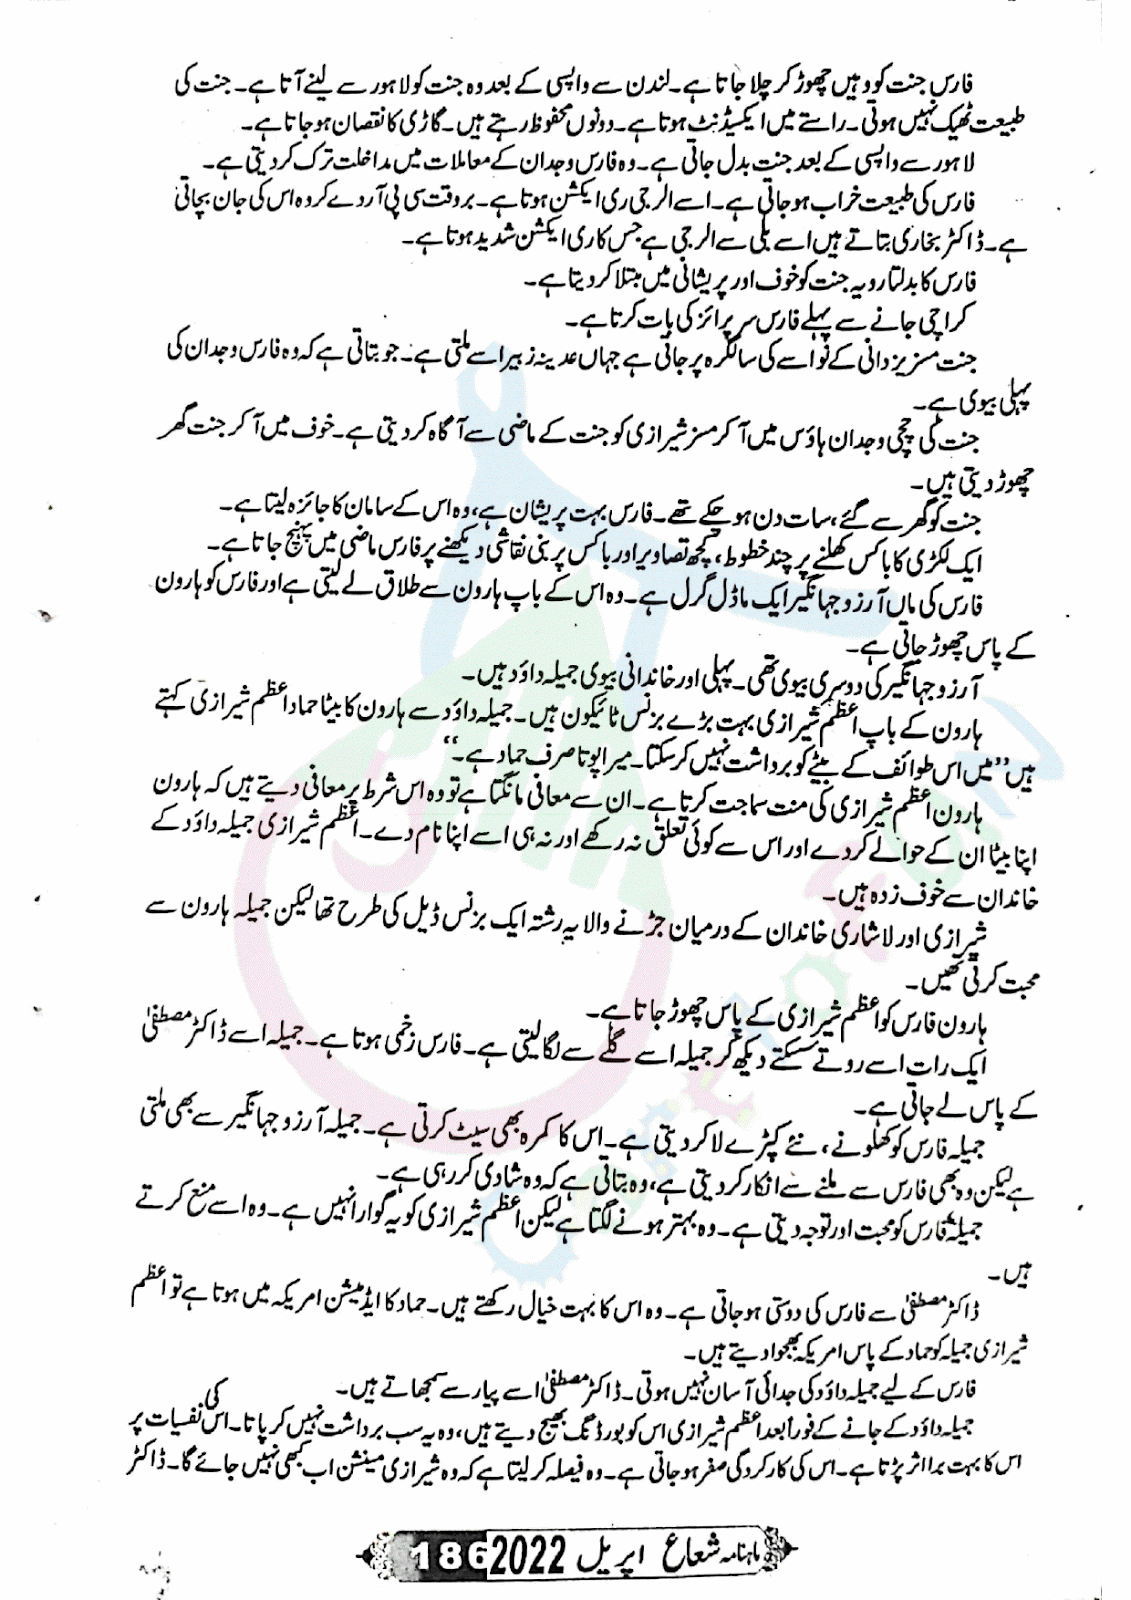 فارس جنت کو وہیں چھوڑ کر چلا جاتا ہے۔ لندن سے واپسی کے بعد وہ جنت کو لاہور سے لینے آتا ہے۔ جنت کی
طبیعت ٹھیک نہیں ہوتی۔ راستے میں ایکسیڈنٹ ہوتا ہے۔ دونوں محفوظ رہتے ہیں۔ گاڑی کا نقصان ہو جاتا ہے۔
لاہور سے واپسی کے بعد جنت بدل جاتی ہے۔ وہ فارس وجدان کے معاملات میں مداخلت ترک کر دیتی ہے۔
فارس کی طبیعت خراب ہو جاتی ہے۔ اسے الرجی ری ایکشن ہوتا ہے۔ بروقت سی پی آر دے کر وہ اس کی جان بچاتی
ہے۔ ڈاکٹر بخاری بتاتے ہیں اسے بلی سے الرجی ہے جس کا ری ایکشن شدید ہوتا ہے۔
فارس کا بدلتا رویہ جنت کو خوف اور پریشانی میں مبتلا کر دیتا ہے۔
کراچی جانے سے پہلے فارس سرپرائز کی بات کرتا ہے۔
جنت مسز یزدانی کے نواسے کی سالگرہ پر جاتی ہے جہاں عدینہ زبیر اسے ملتی ہے۔ جو بتاتی ہے کہ وہ فارس وجدان کی
پہلی بیوی ہے۔
جنت کی چچی وجدان ہاؤس میں آ کر مسز شیرازی کو جنت کے ماضی سے آگاہ کر دیتی ہے۔ خوف میں آ کر جنت گھر
چھوڑ دیتی ہیں۔
جنت کو گھر سے گئے، سات دن ہو چکے تھے۔ فارس بہت پریشان ہے، وہ اس کے سامان کا جائزہ لیتا ہے۔
ایک لکڑی کا باکس کھلنے پر چند خطوط، کچھ تصاویر اور باکس پر بنی نقاشی دیکھنے پر فارس ماضی میں پہنچ جاتا ہے۔
فارس کی ماں آرزو جہانگیر ایک ماڈل گرل ہے۔ وہ اس کے باپ ہارون سے طلاق لے لیتی ہے اور فارس کو ہارون
کے پاس چھوڑ جاتی ہے۔
آرزو جہانگیر کی دوسری بیوی تھی۔ پہلی اور خاندانی بیوی جمیلہ داؤد ہیں۔
ہارون کے باپ اعظم شیرازی بہت بڑے بزنس ٹائیکون ہیں۔ جمیلہ داؤد سے ہارون کا بیٹا حماد اعظم شیرازی کہتے
ہیں ”میں اس طوائف کے بیٹے کو برداشت نہیں کر سکتا۔ میرا پوتا صرف حماد ہے۔“
ہارون اعظم شیرازی کی منت سماجت کرتا ہے۔ ان سے معافی مانگتا ہے تو وہ اس شرط پر معافی دیتے ہیں کہ ہارون
اپنا بیٹا ان کے حوالے کر دے اور اس سے کوئی تعلق نہ رکھے اور نہ ہی اسے اپنا نام دے۔ اعظم شیرازی جمیلہ داؤد کے
خاندان سے خوف زدہ ہیں۔
شیرازی اور لاشاری خاندان کے درمیان جڑنے والا یہ رشتہ ایک بزنس ڈیل کی طرح تھا لیکن جمیلہ ہارون سے
محبت کرتی تھیں۔
ہارون فارس کو اعظم شیرازی کے پاس چھوڑ جاتا ہے۔
ایک رات اسے روتے سسکتے دیکھ کر جمیلہ اسے گلے سے لگا لیتی ہے۔ فارس زخمی ہوتا ہے۔ جمیلہ اسے ڈاکٹر مصطفیٰ
کے پاس لے جاتی ہے۔
جمیلہ فارس کو کھلونے، نئے کپڑے لا کر دیتی ہے۔ اس کا کمرہ بھی سیٹ کرتی ہے۔ جمیلہ آرزو جہانگیر سے بھی ملتی
ہے لیکن وہ بھی فارس سے ملنے سے انکار کر دیتی ہے، وہ بتاتی ہے کہ وہ شادی کر رہی ہے۔
جمیلہ فارس کو محبت اور توجہ دیتی ہے۔ وہ بہتر ہونے لگتا ہے لیکن اعظم شیرازی کو یہ گوارا نہیں ہے۔ وہ اسے منع کرتے
ہیں۔
ڈاکٹر مصطفیٰ سے فارس کی دوستی ہو جاتی ہے۔ وہ اس کا بہت خیال رکھتے ہیں۔ حماد کا ایڈمیشن امریکہ میں ہوتا ہے تو اعظم
شیرازی جمیلہ کو حماد کے پاس امریکہ بھجوا دیتے ہیں۔
فارس کے لیے جمیلہ داؤد کی جدائی آسان نہیں ہوتی۔ ڈاکٹر مصطفیٰ اسے پیار سے سمجھاتے ہیں۔
جمیلہ داؤد کے جانے کے فوراً بعد اعظم شیرازی اس کو بورڈنگ بھیج دیتے ہیں، وہ یہ سب برداشت نہیں کر پاتا۔ اس کی نفسیات پر
اس کا بہت برا اثر پڑتا ہے۔ اس کی کارکردگی صفر ہو جاتی ہے۔ وہ فیصلہ کر لیتا ہے کہ وہ شیرازی مینشن اب کبھی نہیں جائے گا۔ ڈاکٹر
ماہنامہ شعاع اپریل 2022 186